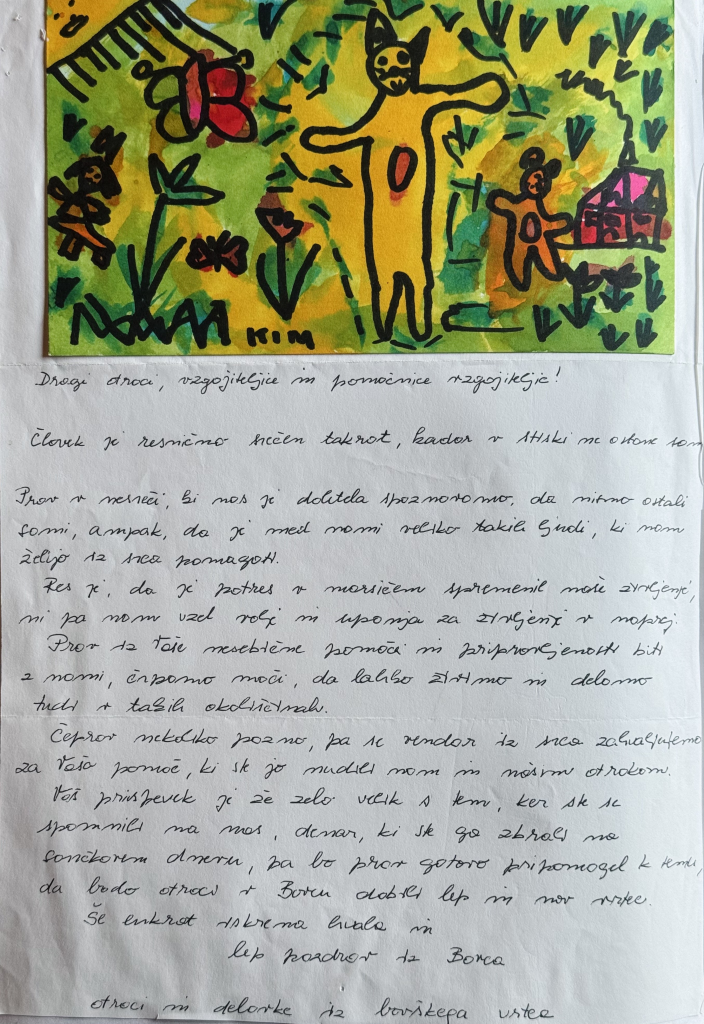 KIM
Dragi otroci, vzgojiteljice in pomočnice vzgojiteljic!
Človek je resnično srečen takrat, kadar v stiski ne ostane sam
Prav v nesreči, ki nas je doletela spoznavamo, da nismo ostali
sami, ampak, da je med nami veliko takih ljudi, ki nam
želijo iz srca pomagati.
Res je, da je potres v marsičem spremenil naše življenje,
ni pa nam vzel volje in upanja za življenje v naprej.
Prav iz Vaše nesebične pomoči in pripravljenosti biti
z nami, črpamo moči, da lahko živimo in delamo
tudi v takih okoliščinah.
Čeprav nekoliko pozno, pa se vendar iz srca zahvaljujemo
za Vašo pomoč, ki ste jo nudili nam in našim otrokom.
Vaš prispevek je že zelo velik s tem, ker ste se
spomnili na nas, denar, ki ste ga zbrali na
sončkovem dnevu, pa bo prav gotovo pripomogel k temu,
da bodo otroci v Bovcu dobili lep in nov vrtec.
Še enkrat iskrena hvala in
lep pozdrav iz Bovca
otroci in delavke iz bovškega vrtca